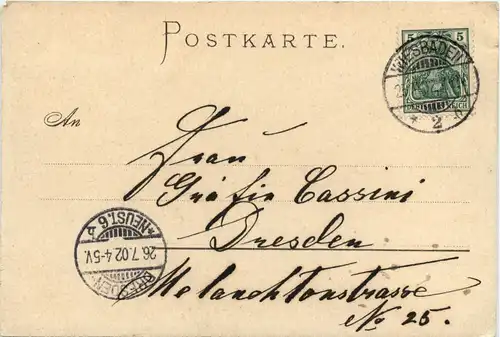 POSTKARTE.
5 5
WIESBADEN
DEUTSCHES REICH
* 2
An
Frau
Gräfin Cassini
Dresden
Melanchtonstrasse
No 25.
DRESDEN-
26.7.02 4-5V.
*NEUST.6 b